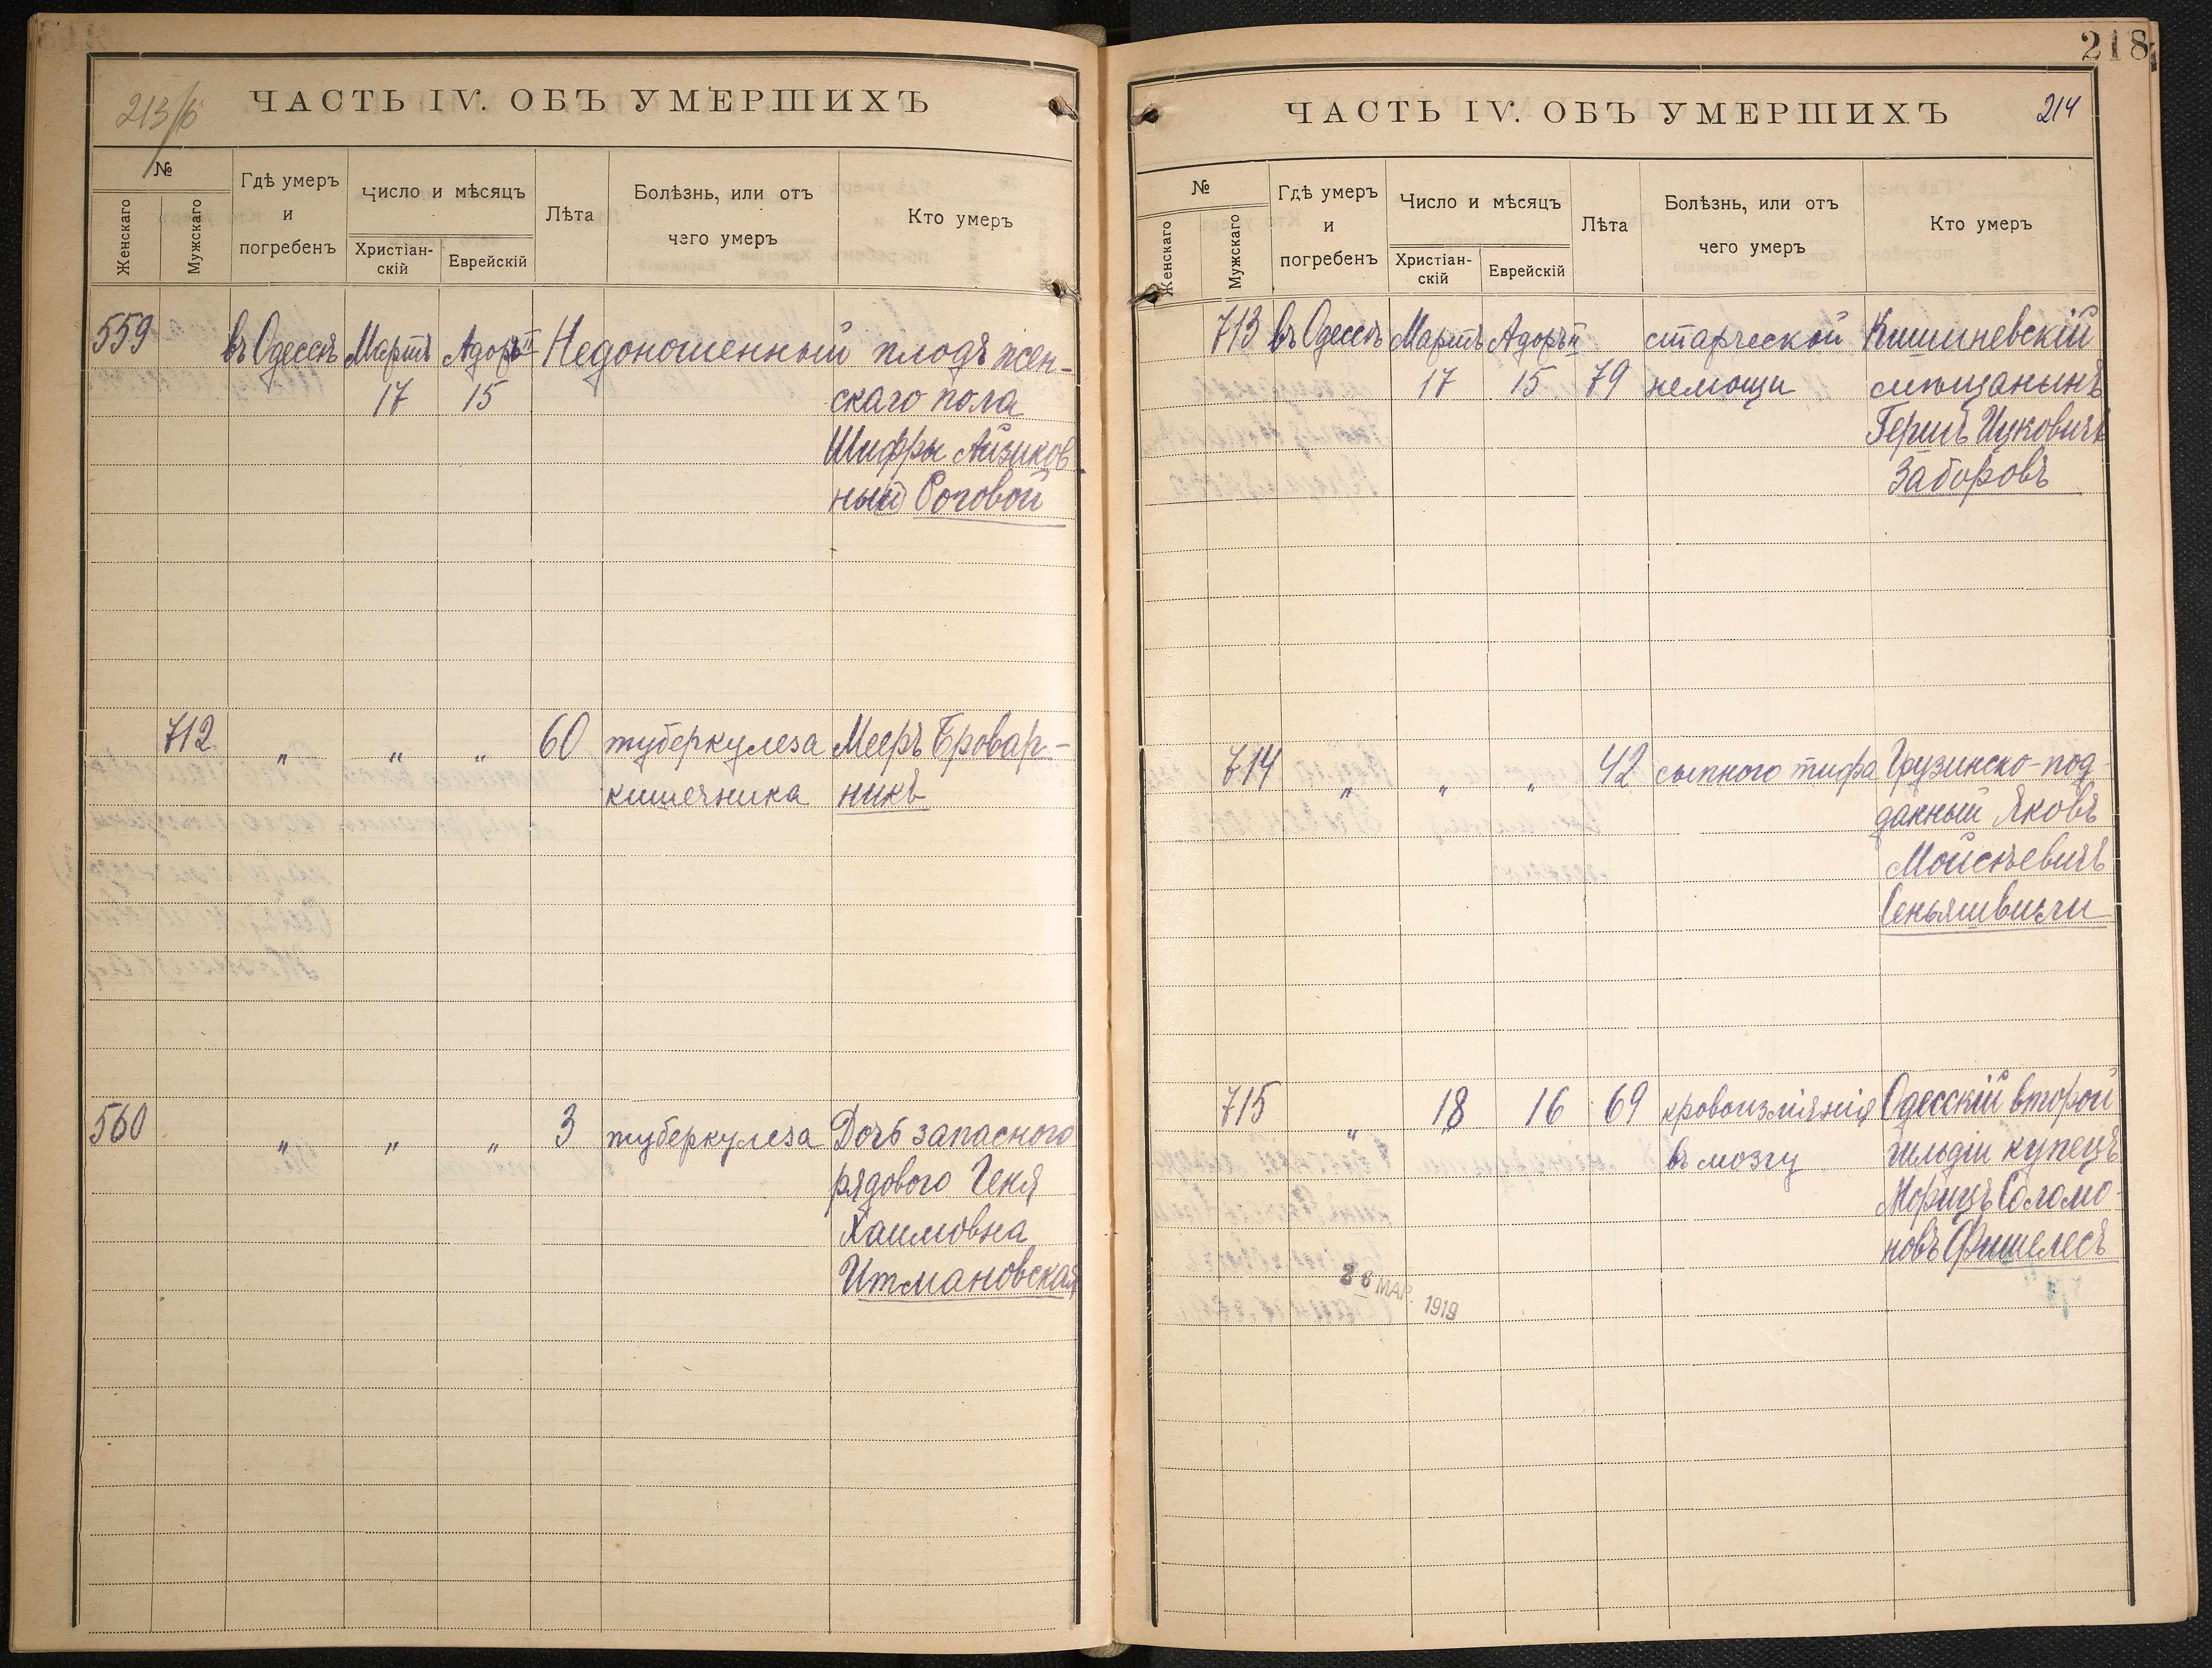 213/б
ЧАСТЬ IV. ОБЪ УМЕРШИХЪ
№
Женскаго
Мужскаго
Гдѣ умеръ
и
погребенъ
Число и мѣсяцъ
Христіан-
скій
Еврейскій
Лѣта
Болѣзнь, или отъ
чего умеръ
Кто умеръ
559 въ Одессѣ Мартъ Адоръ II Недоношенный плодъ жен-
17 15 скаго пола
Шифры Айзиков
ны Роговой
712 „ „ „ 60 туберкулеза Мееръ Бровар-
кишечника никъ
560 „ „ „ 3 туберкулеза Дочь запасного
рядового Геня
Хаимовна
Итмановская
218
ЧАСТЬ IV. ОБЪ УМЕРШИХЪ
214
№
Женскаго
Мужскаго
Гдѣ умеръ
и
погребенъ
Число и мѣсяцъ
Христіан-
скій
Еврейскій
Лѣта
Болѣзнь, или отъ
чего умеръ
Кто умеръ
713 въ Одессѣ Мартъ Адоръ II старческой Кишиневскій
17 15 79 немощи мѣщанинъ
Гершъ Ицковичъ
Заборовъ
714 „ „ „ 42 сыпного тифа Грузинско-под-
данный Яковъ
Мойсѣевичъ
715 „ 18 16 69 кровоизліянія Одесскій второй
въ мозгу гильдіи купецъ
Морицъ Соломо-
новъ Фишелесъ
26 МАР. 1919